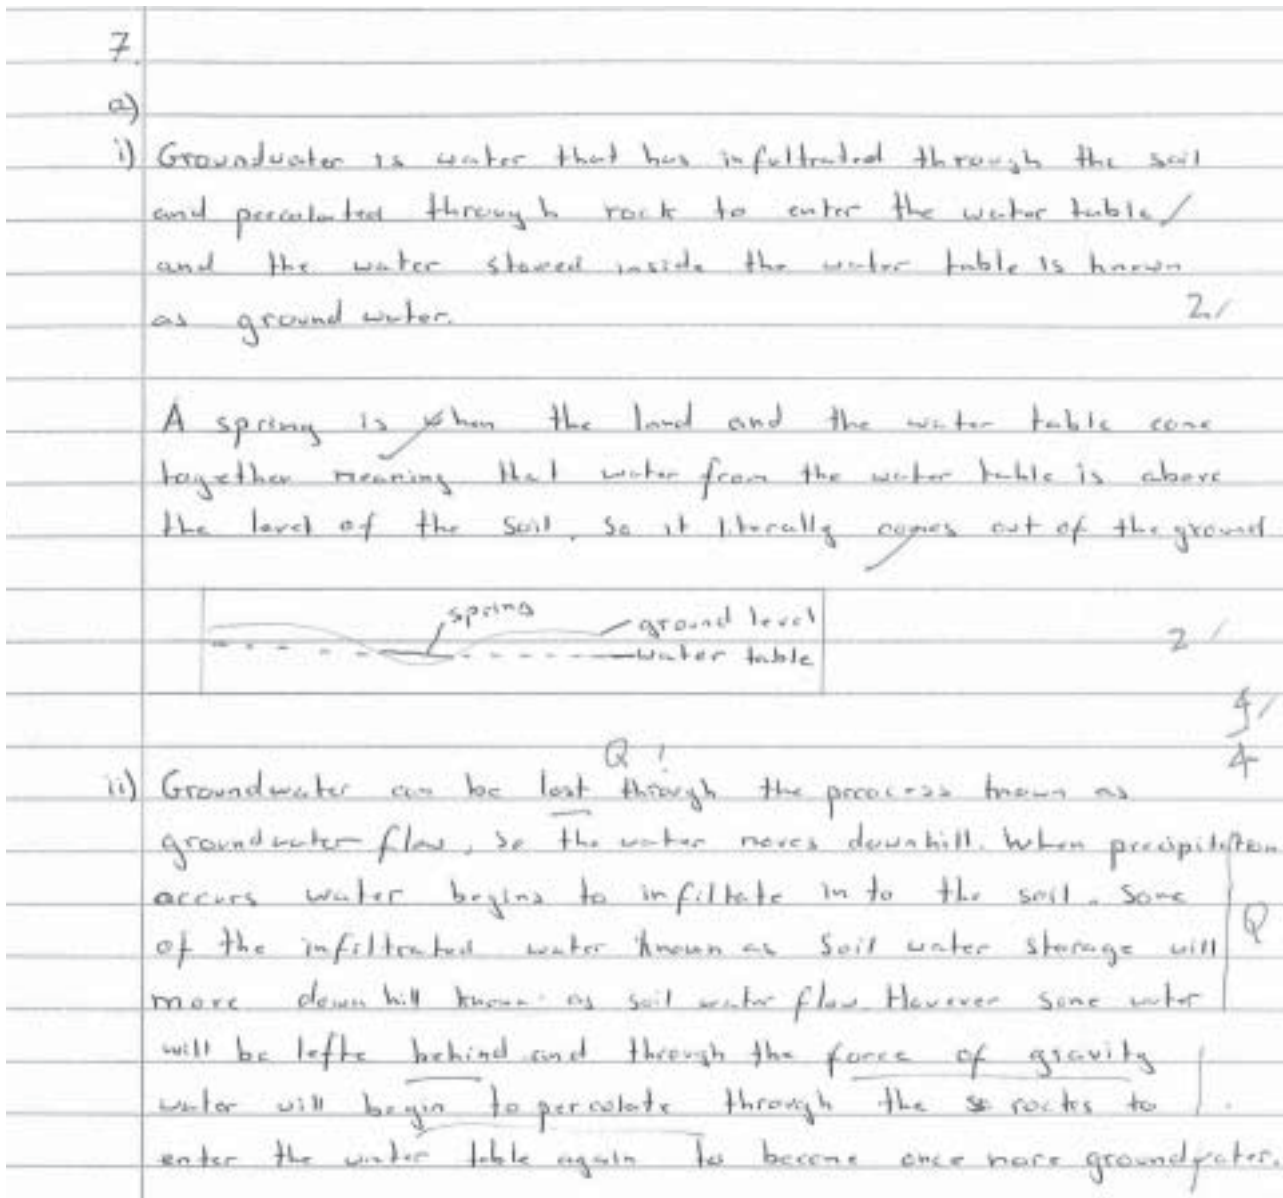 7.
a)
i) Groundwater is water that has infultrated through the soil
and percolated through rock to enter the water table
and the water stored inside the water table is known
as ground water.
2
A spring is when the land and the water table come
together meaning that water from the water table is above
the level of the soil. So it literally comes out of the ground
spring
ground level
water table
2
4
4
Q !
ii) Groundwater can be lost through the process known as
groundwater flow, so the water moves downhill. When precipitation
occurs water begins to infiltate in to the soil. Some
of the infiltrated water known as soil water storage will
Q
move down hill known as soil water flow. However some water
will be lefte behind and through the force of gravity
water will begin to percolate through the rocks to
enter the water table again to become once more groundwater.